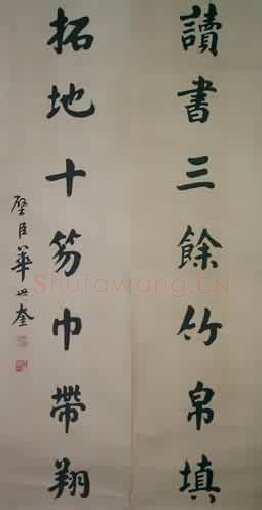 讀書三餘竹帛填
拓地十笏巾帶翔
璧臣華世奎
Shufawang.CN